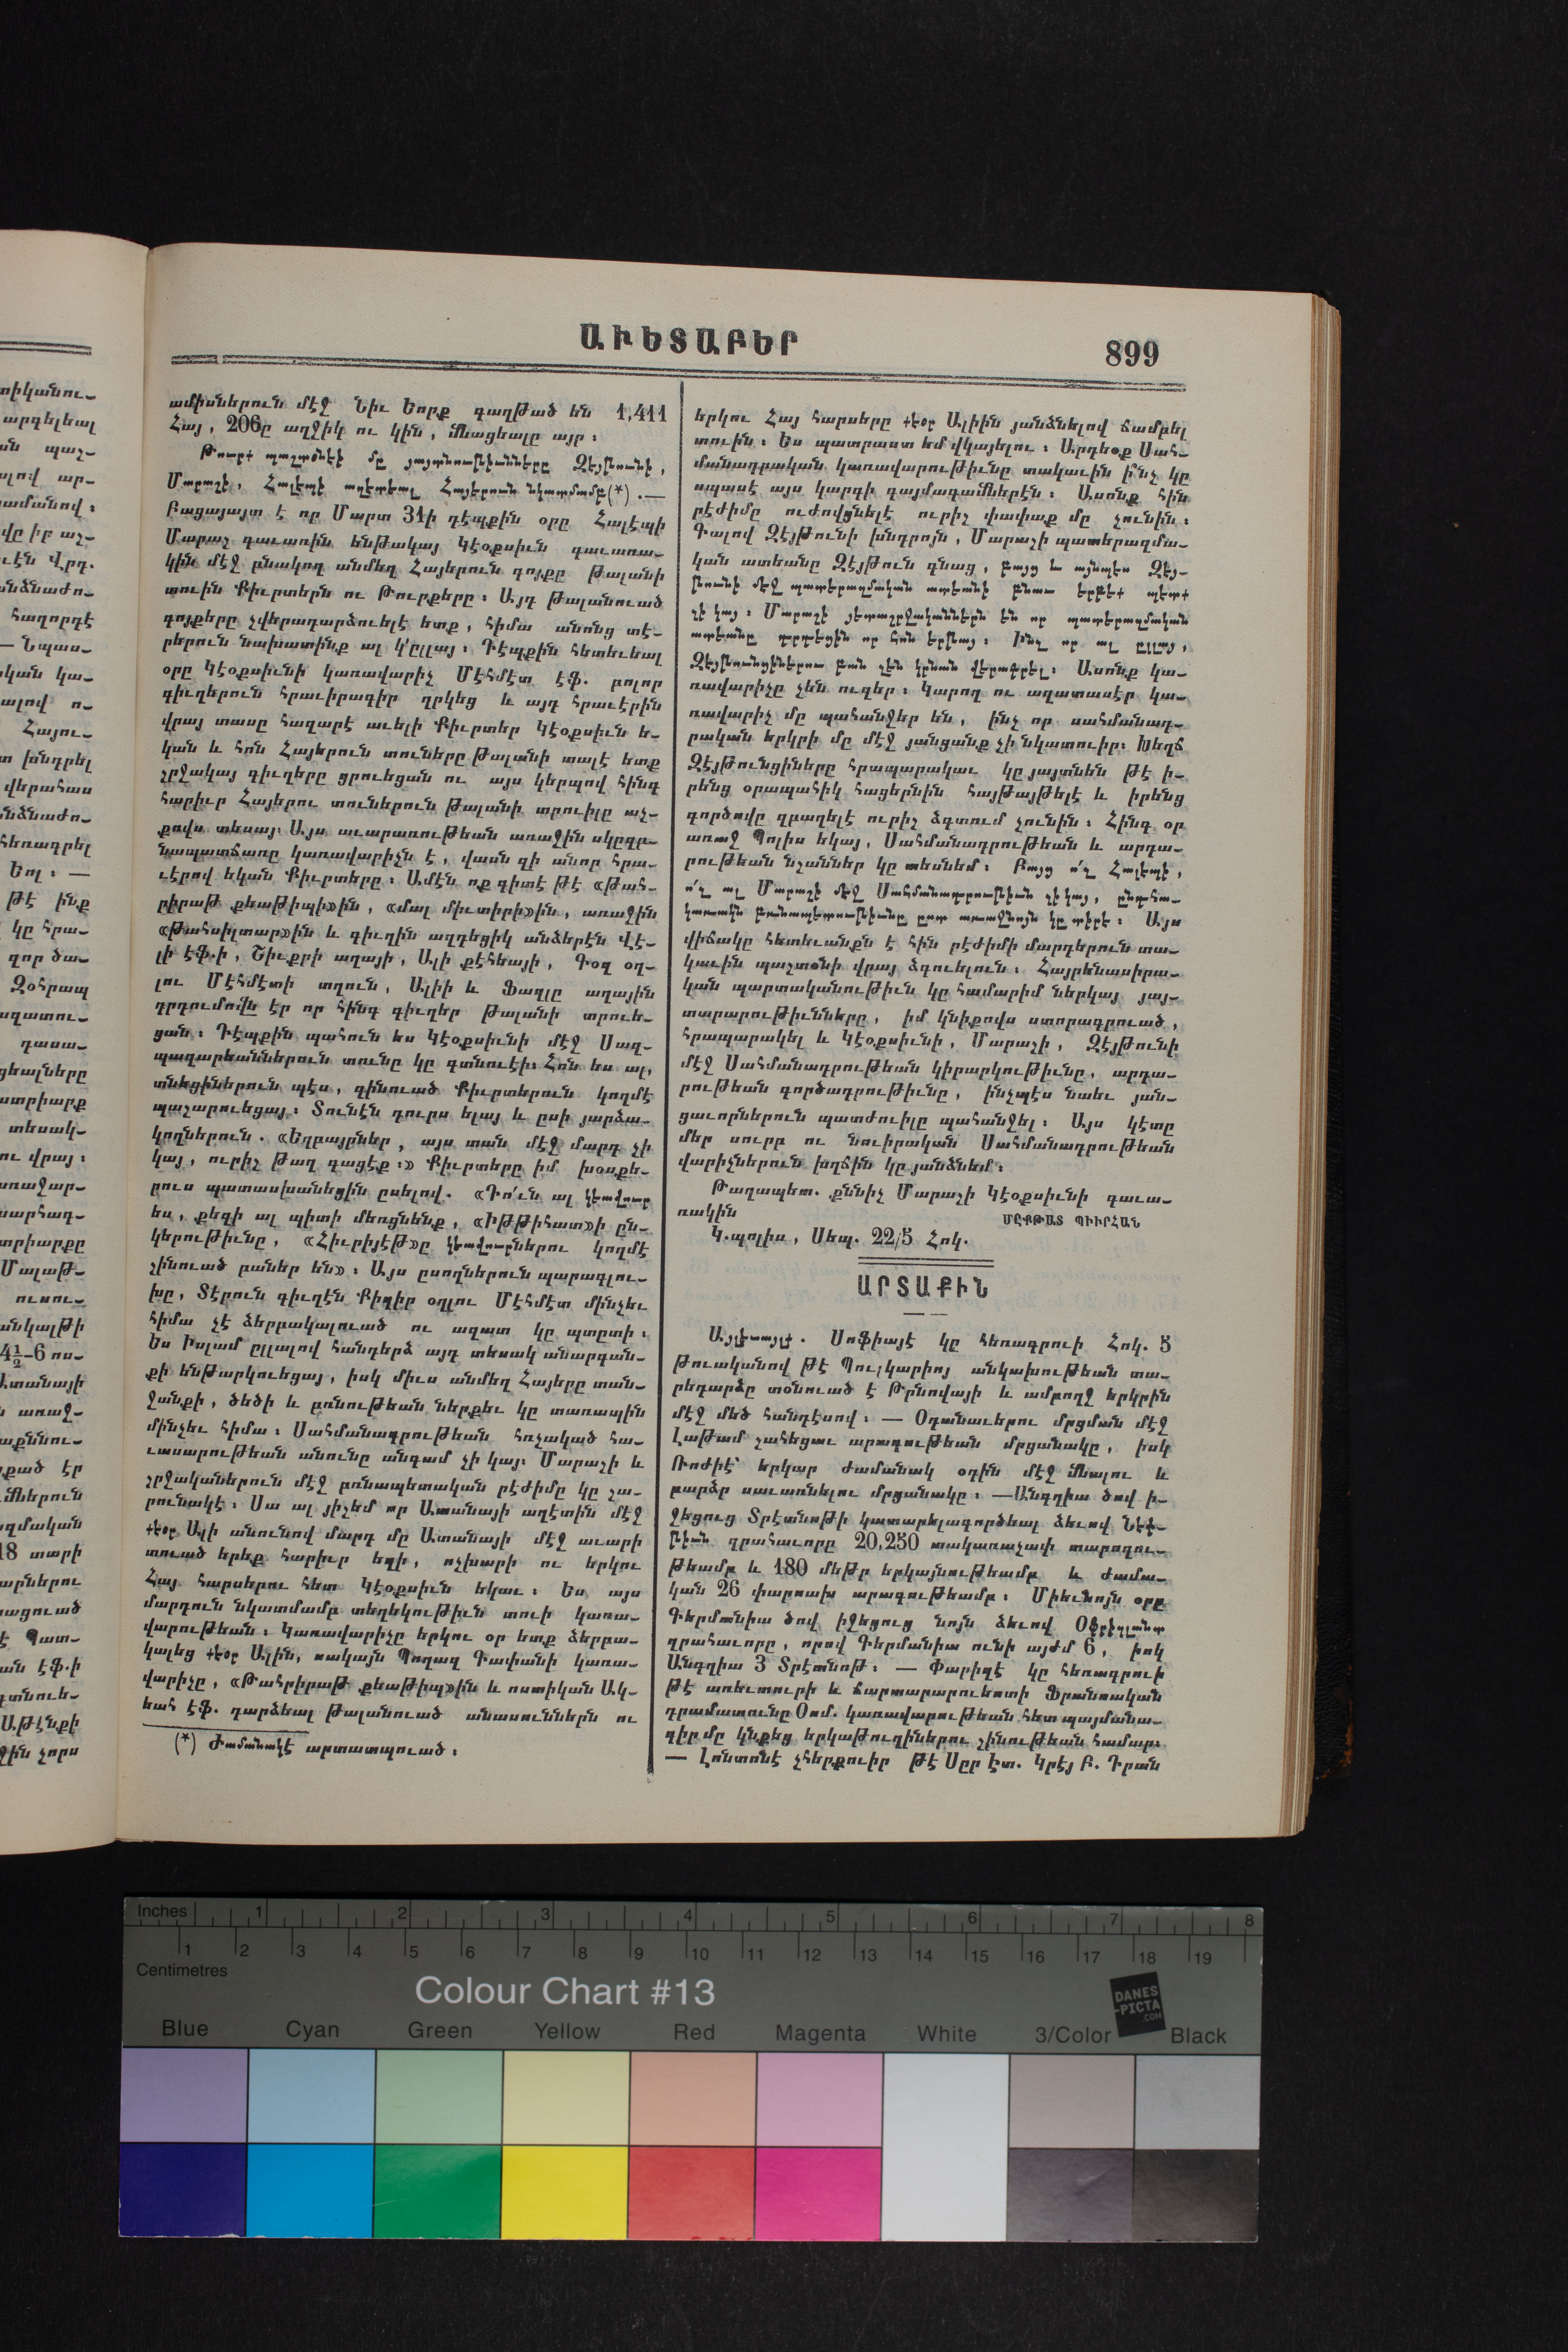 ԱՒԵՏԱԲԵՐ
899
ամիսներուն մէջ Նիւ Եորք գաղթած են 1,411
Հայ, 206ը աղջիկ ու կին, մնացեալը այր։
Թուրք պաշտօնէի մը յայտնութիւնները Զէյթունի,
Մարաշի, Հալէպի աղէտեալ Հայերուն նկատմամբ(*).—
Բացայայտ է որ Մարտ 31ի դէպքին օրը Հալէպի
Մարաշ գաւառին ենթակայ Կէօքսիւն գաւառա-
կին մէջ բնակող անմեղ Հայերուն գոյքը թալանի
տուին Քիւրտերն ու Թուրքերը։ Այդ թալանուած
գոյքերը չվերադարձուելէ ետք, հիմա անոնց տէ-
րերուն նախատինք ալ կ՚ըլլայ։ Դէպքին հետեւեալ
օրը Կէօքսիւնի կառավարիչ Մէհմէտ էֆ. բոլոր
գիւղերուն հրաւիրագիր ղրկեց և այդ հրաւէրին
վրայ տասը հազարէ աւելի Քիւրտեր Կէօքսիւն ե-
կան և հոն Հայերուն տուները թալանի տալէ ետք
շրջակայ գիւղերը ցրուեցան ու այս կերպով հինգ
հարիւր Հայերու տուներուն թալանի տրուիլը աչ-
քովս տեսայ։ Այս աւարառութեան առաջին սկըզբ-
նապատճառը կառավարիչն է, վասն զի անոր հրա-
ւէրով եկան Քիւրտերը։ Ամէն ոք գիտէ թէ «Թահ-
րիրաթ քեաթիպի»ին, «մալ միւտիրի»ին, առաջին
«Թահսիլտար»ին և գիւղին ազդեցիկ անձերէն Վէ-
լի էֆ.ի, Շիւքրի աղայի, Ալի քէհեայի, Գօզ օղ-
լու Մէհմէտի տղուն, Ալիի և Ֆազլը աղային
դրդումովն էր որ հինգ գիւղեր թալանի տրուե-
ցան։ Դէպքին պահուն ես Կէօքսիւնի մէջ Սազ-
պազարեաններուն տունը կը գտնուէի։ Հոն ես ալ,
տնեցիներուն պէս, զինուած Քիւրտերուն կողմէ
պաշարուեցայ։ Տունէն դուրս ելայ և ըսի յարձա-
կողներուն. «Եղբայրներ, այս տան մէջ մարդ չի
կայ, ուրիշ թաղ գացէք։» Քիւրտերը իմ խօսքե-
րուս պատասխանեցին ըսելով. «Դո՛ւն ալ կեավուր
ես, քեզի ալ պիտի մեռցնենք, «Իթթիհատ»ի ըն-
կերութիւնը, «Հիւրիյէթ»ը կեավուրներու կողմէ
շինուած բաներ են»։ Այս ըսողներուն պարագլու-
խը, Տէրուն գիւղէն Քիպիր օղլու Մէհմէտ մինչեւ
հիմա չէ ձերբակալուած ու ազատ կը պտըտի։
Ես Իսլամ ըլլալով հանդերձ այդ տեսակ անարգան-
քի ենթարկուեցայ, իսկ միւս անմեղ Հայերը տան-
ջանքի, ծեծի և բռնութեան ներքեւ կը տառապին
մինչեւ հիմա։ Սահմանադրութեան հռչակած հա-
ւասարութեան անունը անգամ չի կայ։ Մարաշի և
շրջականերուն մէջ բռնապետական րէժիմը կը շա-
րունակէ։ Սա ալ յիշեմ որ Ատանայի աղէտին մէջ
քէօր Ալի անունով մարդ մը Ատանայի մէջ աւարի
տուած երեք հարիւր եզի, ոչխարի ու երկու
Հայ հարսերու հետ Կէօքսիւն եկաւ։ Ես այս
մարդուն նկատմամբ տեղեկութիւն տուի կառա-
վարութեան։ Կառավարիչը երկու օր ետք ձերբա-
կալեց քէօր Ալին, սակայն Պողազ Գափանի կառա-
վարիչը, «Թահրիրաթ քեաթիպ»ին և ոստիկան Ակ-
եահ էֆ. դարձեալ թալանուած անասուններն ու
(*) Ժամանակէ արտատպուած։
երկու Հայ հարսերը քէօր Ալիին յանձնելով ճամբել
տուին։ Ես պատրաստ եմ վկայելու։ Արդեօք Սահ-
մանադրական կառավարութիւնը տակաւին ի՞նչ կը
սպասէ այս կարգի դայմագամներէն։ Ասոնք հին
րէժիմը ուժովցնելէ ուրիշ փափաք մը չունին։
Գալով Զէյթունի խնդրոյն, Մարաշի պատերազմա-
կան ատեանը Զէյթուն գնաց, բայց և այնպես Զէյ-
թունի մէջ պատերազմական ատեանի բնաւ երբեք պէտք
չի կայ։ Մարաշի յետաշրջականներն են որ պատերազմական
ատեանը դրդեցին որ հոն երթայ։ Ինչ որ ալ ըլլայ,
Զէյթունցիներու բան չեն կրնան վերագրել։ Ասոնք կա-
ռավարիչը չեն ուզեր։ Կարող ու ազատասէր կա-
ռավարիչ մը պահանջեր են, ինչ որ սահմանադ-
րական երկրի մը մէջ յանցանք չի նկատուիր։ Խեղճ
Զէյթունցիները հրապարակաւ կը յայտնեն թէ ի-
րենց օրապահիկ հացերնին հայթայթելէ և իրենց
գործովը զբաղելէ ուրիշ ձգտում չունին։ Հինգ օր
առաջ Պոլիս եկայ, Սահմանադրութեան և արդա-
րութեան նշաններ կը տեսնեմ։ Բայց ո՛չ Հալէպի,
ո՛չ ալ Մարաշի մէջ Սահմանադրութիւն չի կայ, ընդհա-
կառակն բռնապետութիւնը ըստ առաջնոյն կը տիրէ։ Այս
վիճակը հետեւանքն է հին րէժիմի մարդերուն տա-
կաւին պաշտօնի վրայ ձգուելուն։ Հայրենասիրա-
կան պարտականութիւն կը համարիմ ներկայ յայ-
տարարութիւնները, իմ կնիքովս ստորագրուած,
հրապարակել և Կէօքսիւնի, Մարաշի, Զէյթունի
մէջ Սահմանադրութեան կիրարկութիւնը, արդա-
րութեան գործադրութիւնը, ինչպէս նաեւ յան-
ցաւորներուն պատժուիլը պահանջել։ Այս կէտը
մեր սուրբ ու նուիրական Սահմանադրութեան
վարիչներուն խղճին կը յանձնեմ։
Թաղապետ. քննիչ Մարաշի Կէօքսիւնի գաւա-
ռակին
ՄԸՔԹԱՏ ՊԻՒՐՀԱՆ
Կ.պոլիս, Սեպ. 22/5 Հոկ.
ԱՐՏԱՔԻՆ
Այլեւայլք. Սոֆիայէ կը հեռագրուի Հոկ. 5
թուականով թէ Պուլկարիոյ անկախութեան տա-
րեդարձը տօնուած է Թրնովայի և ամբողջ երկրին
մէջ մեծ հանդէսով։ — Օդանաւերու մրցման մէջ
Լաթամ շահեցաւ արագութեան մրցանակը, իսկ
Ռոժիէ՝ երկար ժամանակ օդին մէջ մնալու և
բարձր սաւառնելու մրցանակը։ —Անգղիա ծով ի-
ջեցուց Տրէտնոթի կատարելագործեալ ձեւով Նեփ-
թիւն զրահաւորը 20,250 տակառաչափ տարողու-
թեամբ և 180 մեթր երկայնութեամբ և ժամա-
կան 26 փարսախ արագութեամբ։ Միեւնոյն օրը
Գերմանիա ծով իջեցուց նոյն ձեւով Օֆրիզլանտ
զրահաւորը, որով Գերմանիա ունի այժմ 6, իսկ
Անգղիա 3 Տրէտնոթ։ — Փարիզէ կը հեռագրուի
թէ առեւտուրի և ճարտարարուեստի Ֆրանսական
դրամատունը Օսմ. կառավարութեան հետ պայմանա-
գիր մը կնքեց երկաթուղիներու շինութեան համար։
— Լոնտոնէ չհերքուիր թէ Սըր Էտ. Կրէյ Բ. Դրան